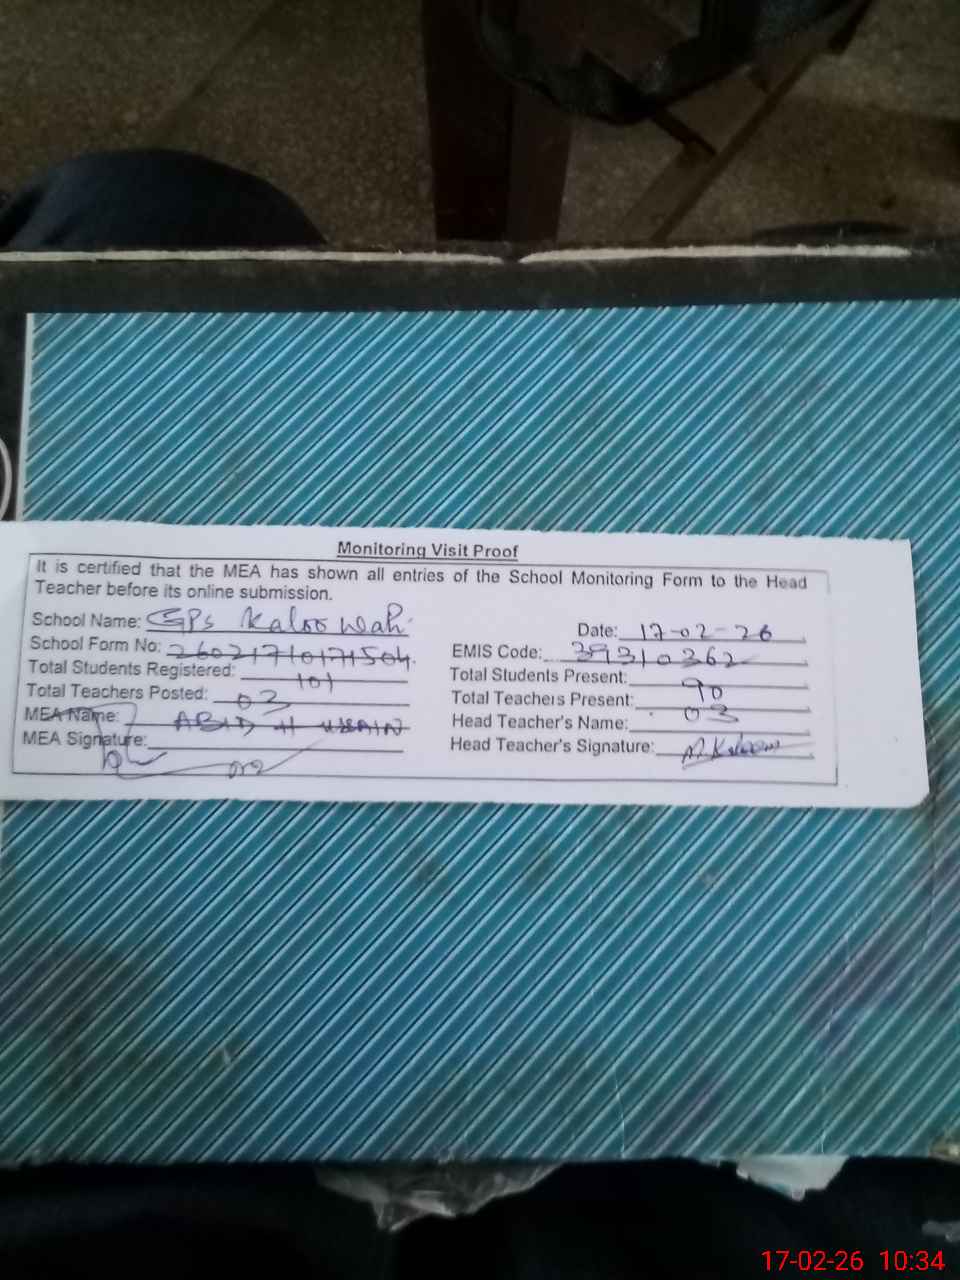 Monitoring Visit Proof
It is certified that the MEA has shown all entries of the School Monitoring Form to the Head
Teacher before its online submission.
School Name: GPS Kaloo wah
Date: 17-02-26
School Form No: 26021710171504
EMIS Code: 39310362
Total Students Registered: 101
Total Students Present: 90
Total Teachers Posted: 03
Total Teachers Present: 03
MEA Name: ABID HUSSAIN
Head Teacher's Name:
MEA Signature:
Head Teacher's Signature: M. Kaleem
17-02-26 10:34